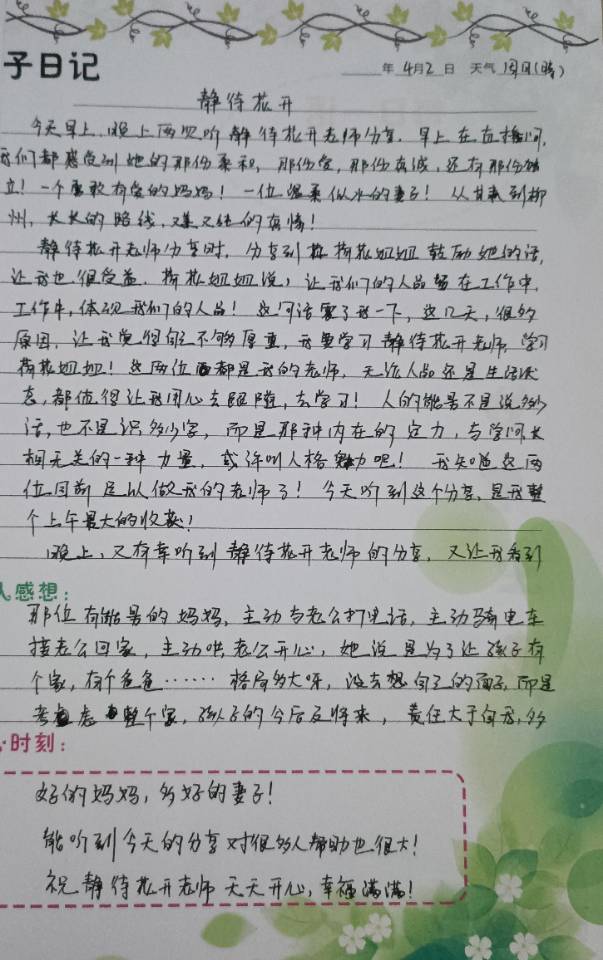 子日记
年 4月2日 天气 周日(晴)
静待花开
今天早上、晚上两次听静待花开老师分享。早上在直播间,
我们都感受到她的那份柔和,那份爱,那份真诚,还有那份独
立!一个勇敢有爱的妈妈!一位温柔似水的妻子!从甘肃到柳
州,长长的路线,又美又纯的真情!
静待花开老师分享时,分享到 荷花姐姐鼓励她的话,
让我也很受益。荷花姐姐说,让我们的人品 在工作中,
工作中,体现我们的人品!这句话震了我一下,这几天,很多
原因,让我觉得自己不够厚重,我要学习静待花开老师,学习
荷花姐姐!这两位 都是我的老师,无论人品还是生活状
态,都值得让我用心去跟随,去学习!人的能量不是说多少
话,也不是识多少字,而是那种内在的定力,与学问长
相无关的一种力量,或许叫人格魅力吧!我知道这两
位目前足以做我的老师了!今天听到这个分享,是我整
个上午最大的收获!
晚上,又有幸听到静待花开老师的分享,又让我看到
人感想:
那位有能量的妈妈,主动与老公打电话,主动骑电车
接老公回家,主动哄老公开心,她说是为了让孩子有
个家,有个爸爸……格局多大呀,没去想自己的面子,而是
考虑 整个家,孩子的今后及将来,责任大于自我,多
·时刻:
好的妈妈,多好的妻子!
能听到今天的分享对很多人帮助也很大!
祝静待花开老师天天开心,幸福满满!